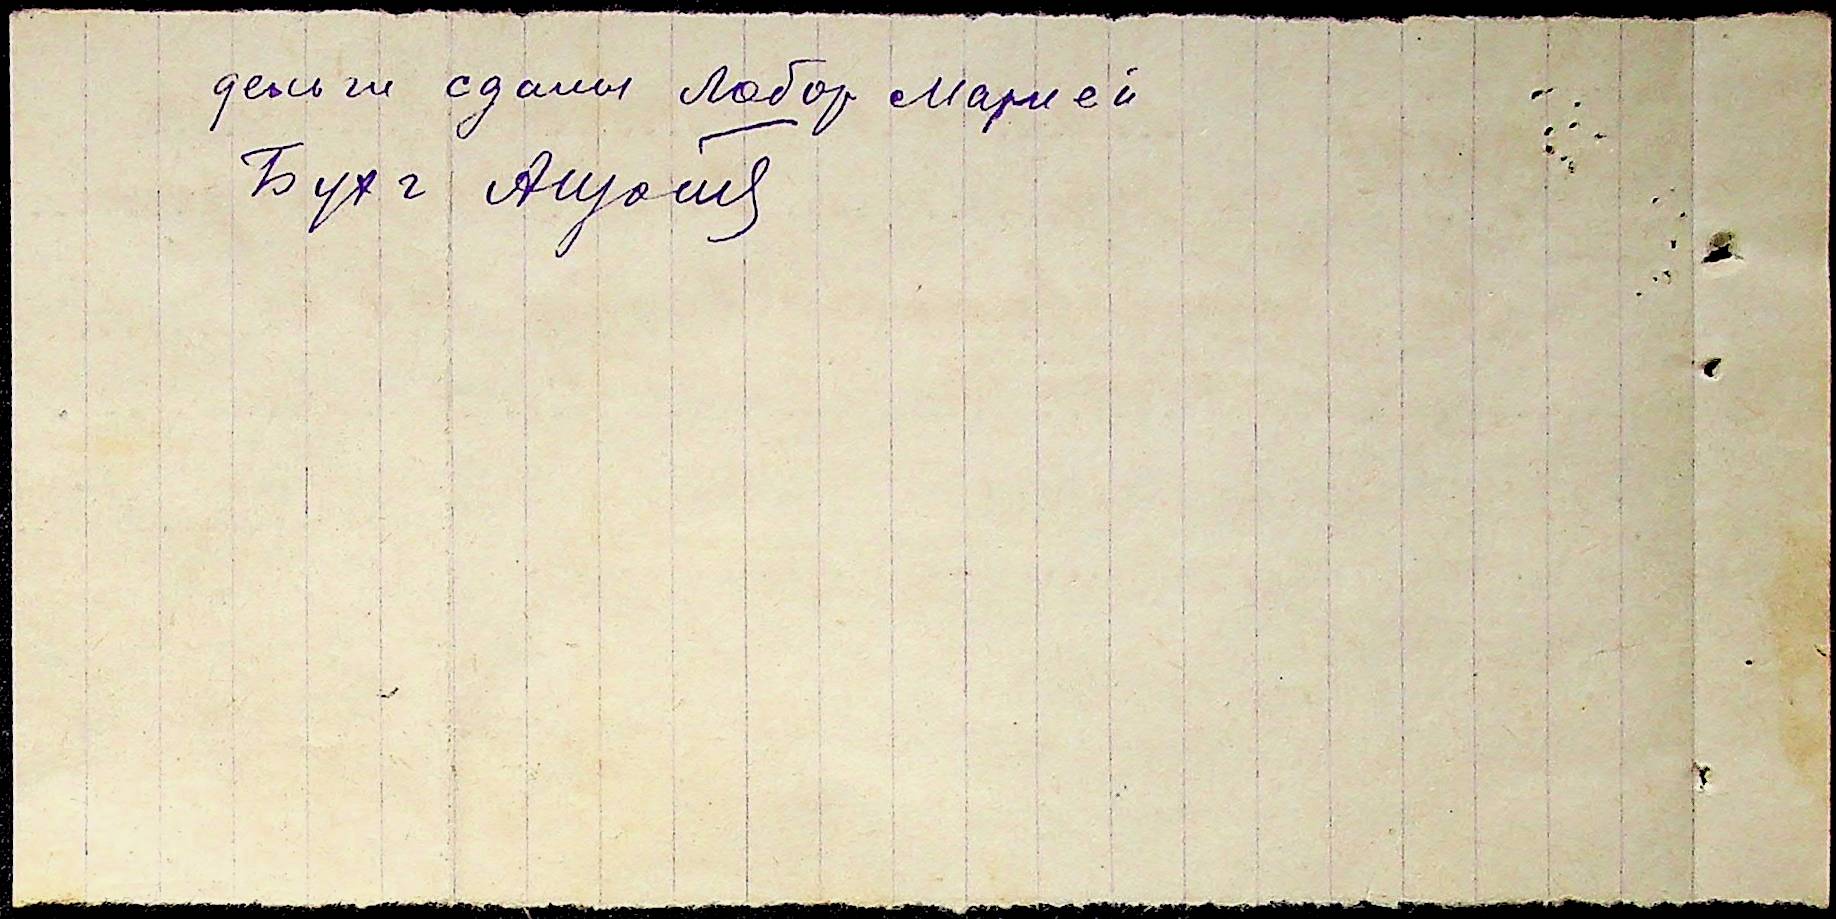 деньги сданы Лобор Марией
Бухг